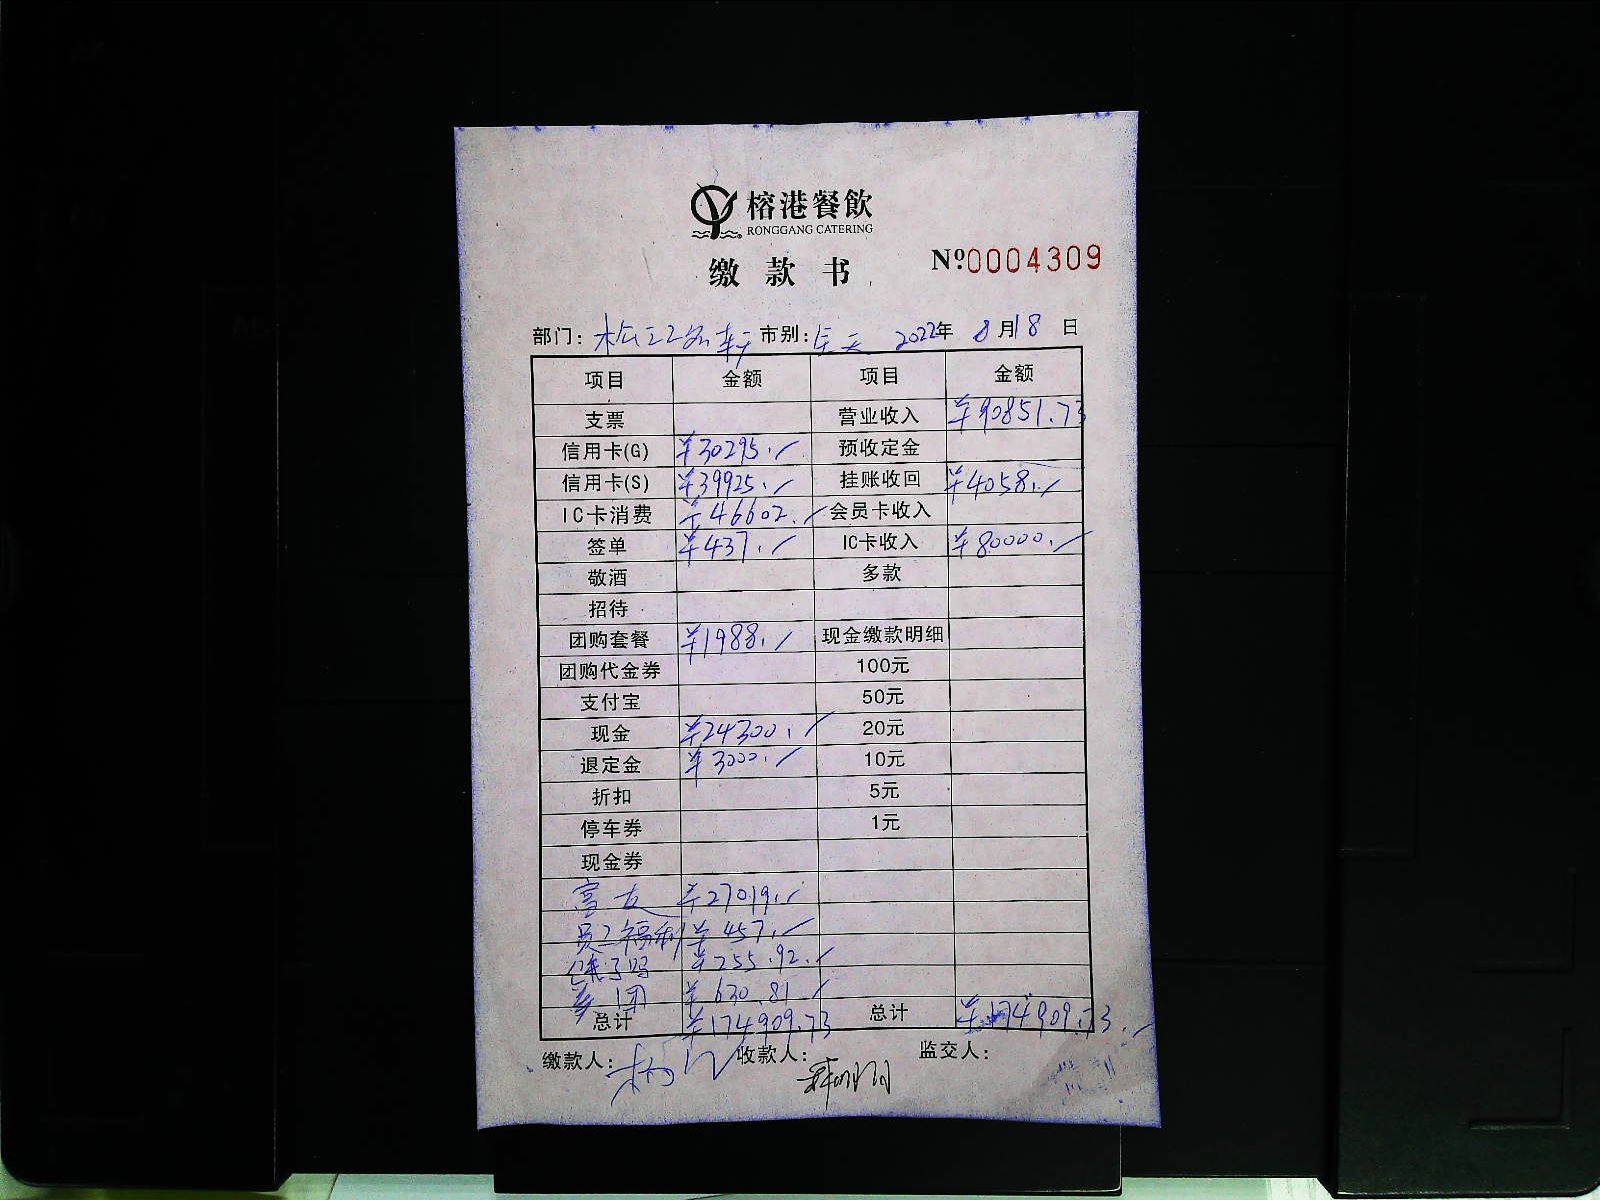 榕港餐飲
RONGGANG CATERING
缴款书
№0004309
部门: 松江名轩 市别: 全天 2022年 8月18日
项目 金额 项目 金额
支票 营业收入 ¥90851.73
信用卡(G) ¥30295.- 预收定金
信用卡(S) ¥39925.- 挂账收回 ¥4058.-
IC卡消费 ¥46602.- 会员卡收入
签单 ¥437.- IC卡收入 ¥80000.-
敬酒 多款
招待
团购套餐 ¥1988.- 现金缴款明细
团购代金券 100元
支付宝 50元
现金 ¥24300.- 20元
退定金 ¥3000.- 10元
折扣 5元
停车券 1元
现金券
富友 ¥27019.-
员工福利 ¥457.-
饿了吗 ¥255.92.-
美团 ¥630.81-
总计 ¥174909.73 总计 ¥174909.73.-
缴款人: 收款人: 监交人: